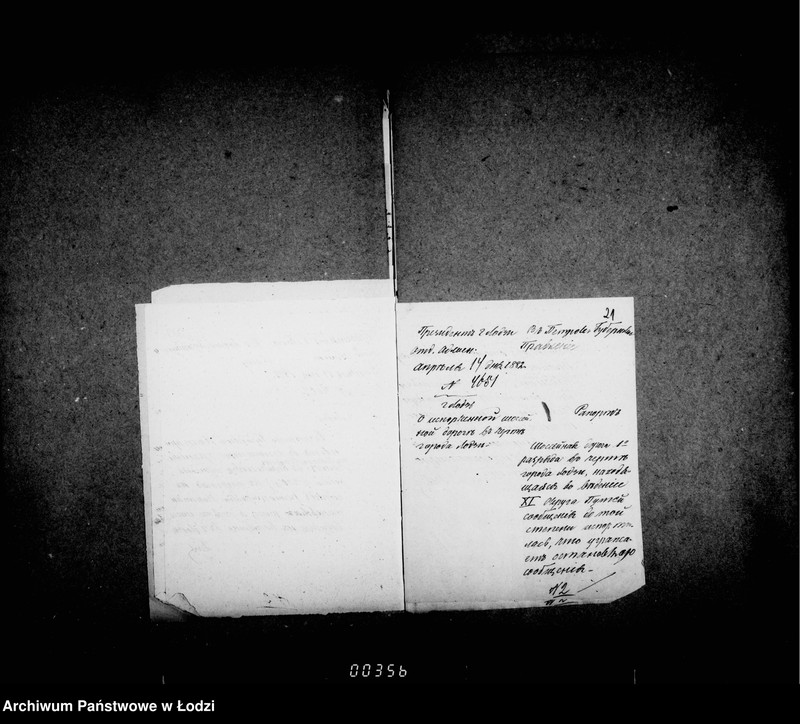 21
Президентъ г. Лодзи
Отд. Админ.
Апрѣля 14 дня 1882
№ 4651
г. Лодзь
О испорченной шоссей
ной дорогѣ въ чертѣ
города Лодзи.
Въ Петроков. Губернск.
Правленіе
Рапортъ
Шоссейная 1го
разряда въ чертѣ
города Лодзи, находя
щаяся въ вѣдѣніи
XI Округа Путей
сообщенія до той
степени испорти
лась, что угрожа
етъ остановкою
сообщенія.
№ 2
00356
Archiwum Państwowe w Łodzi